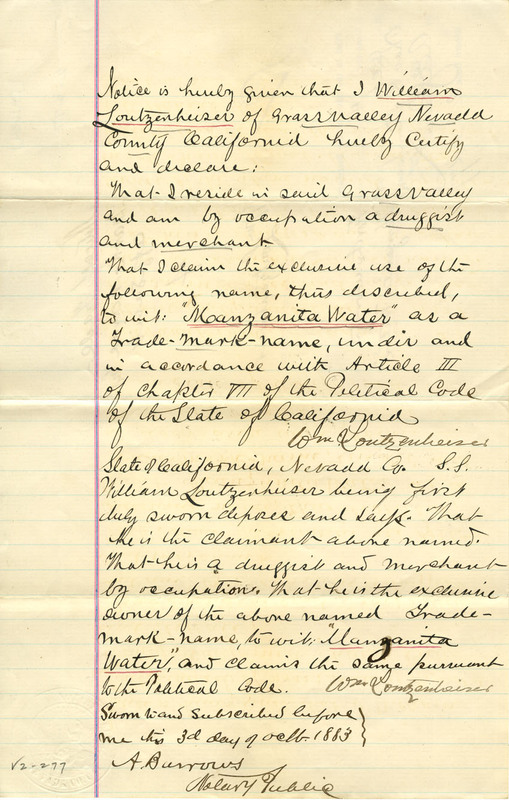 Notice is hereby given that I William
Loutzenheiser of Grass Valley Nevada
County California hereby Certify
and declare:
That I reside in said Grass Valley
and am by occupation a druggist
and merchant
That I claim the exclusive use of the
following name, thus described,
to wit: "Manzanita Water" as a
Trade-mark-name, under and
in accordance with Article III
of Chapter VII of the Political Code
of the State of California
Wm Loutzenheiser
State of California, Nevada Co. S.S.
William Loutzenheiser being first
duly sworn deposes and says. That
he is the claimant above named.
That he is a druggist and merchant
by occupation. That he is the exclusive
owner of the above named Trade-
mark-name, to wit: "Manzanita
Water", and claims the same pursuant
to the Political Code.
Wm Loutzenheiser
Sworn to and subscribed before
me this 3d day of Octb. 1883
A Burrows
Notary Public
V2-277